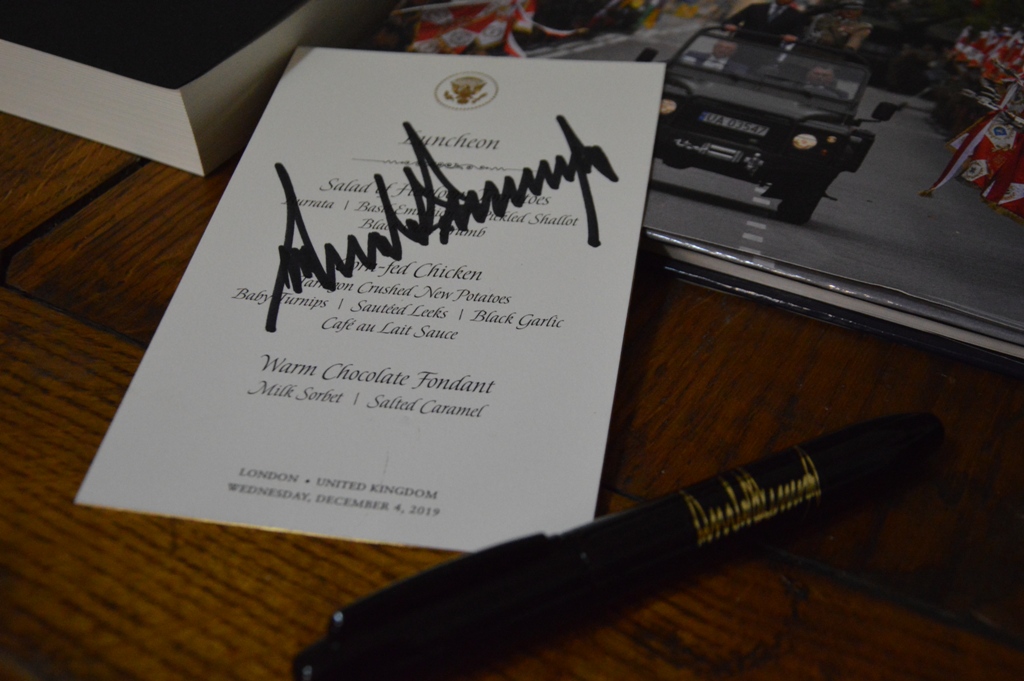 Luncheon
Salad of
Burrata | Pickled Shallot
Corn-fed Chicken
Tarragon Crushed New Potatoes
Baby Turnips | Sautéed Leeks | Black Garlic
Café au Lait Sauce
Warm Chocolate Fondant
Milk Sorbet | Salted Caramel
LONDON • UNITED KINGDOM
WEDNESDAY, DECEMBER 4, 2019
UA 03547